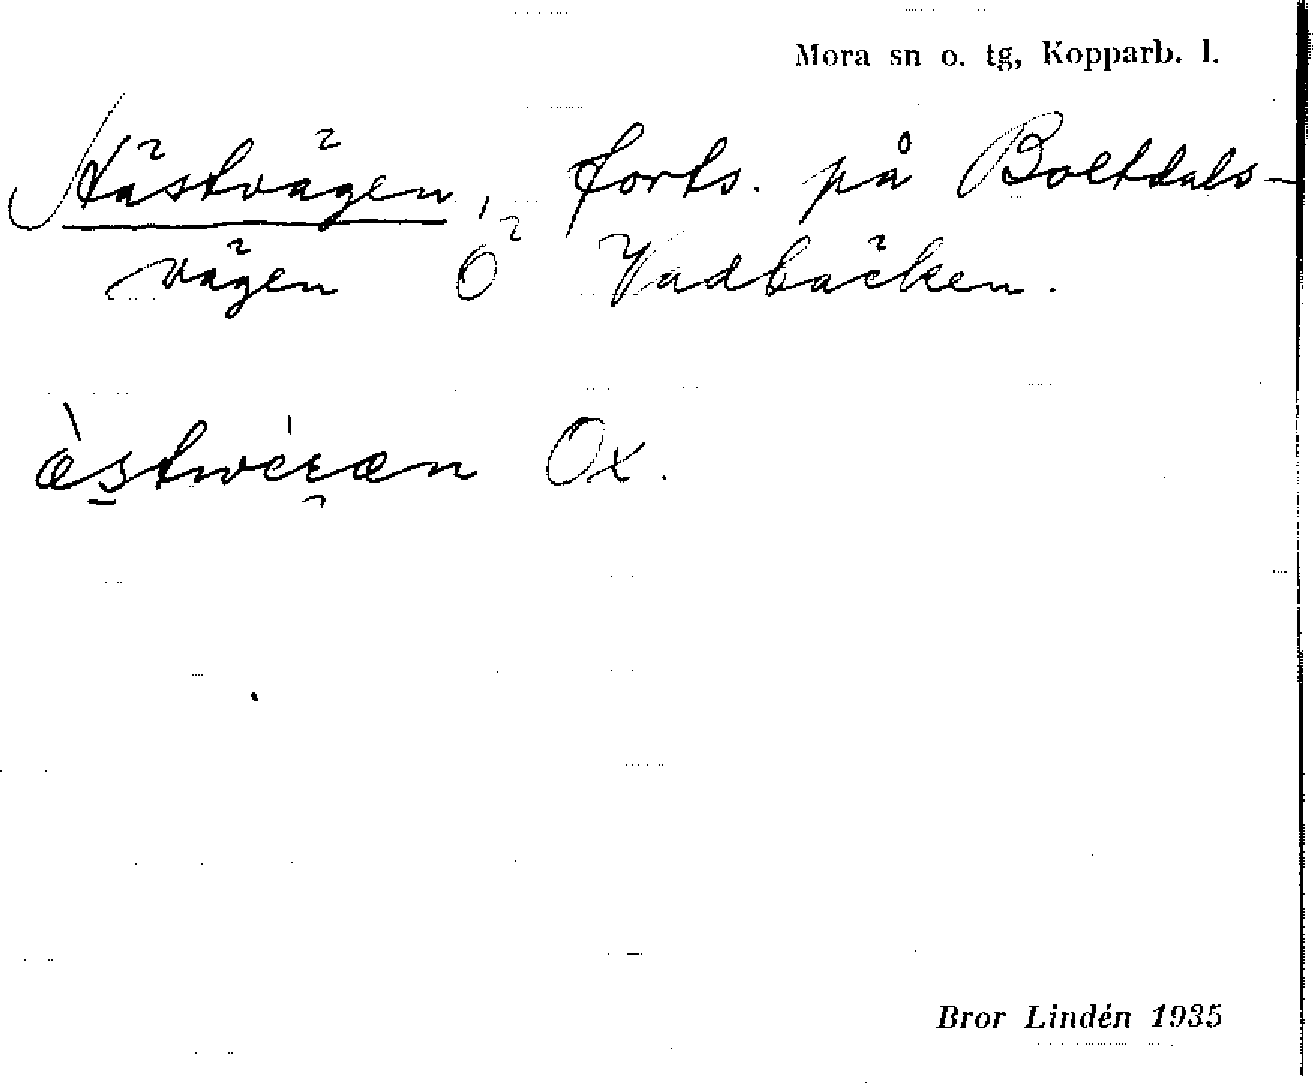 Mora sn o. tg, Kopparb. l.
Hästvägen, forts. på Boltdals-
vägen Ö Vadbäcken.
Ox.
Bror Lindén 1935